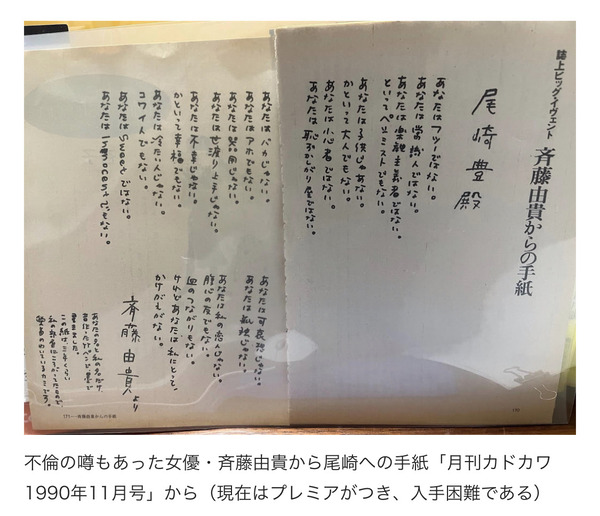 誌上ビッグ・イヴェント 斉藤由貴からの手紙
尾崎豊殿
あなたはフツーではない。
あなたは常識人ではない。
あなたは楽観主義者ではない。
といってペシミストでもない。
あなたは子供じゃあない。
かといって大人でもない。
あなたは小心者ではない。
あなたは恥ずかしがり屋ではない。
あなたはバカじゃない。
あなたはアホでもない。
あなたは器用じゃない。
あなたは世渡り上手じゃない。
あなたは不幸じゃない。
かといって幸福でもない。
あなたは冷たい人じゃない。
コワイ人でもない。
あなたはSweetではない。
あなたはInnocentでもない。
あなたは可哀想じゃない。
あなたは孤独じゃない。
あなたは私の恋人じゃない。
腹心の友でもない。
血のつながりもない。
けれどあなたは私にとって、
かけがえがない。
斉藤由貴より
あなたの名と私の名だけ、
書きました。
この紙は、
171……斉藤由貴からの手紙
不倫の噂もあった女優・斉藤由貴から尾崎への手紙「月刊カドカワ
1990年11月号」から（現在はプレミアがつき、入手困難である）